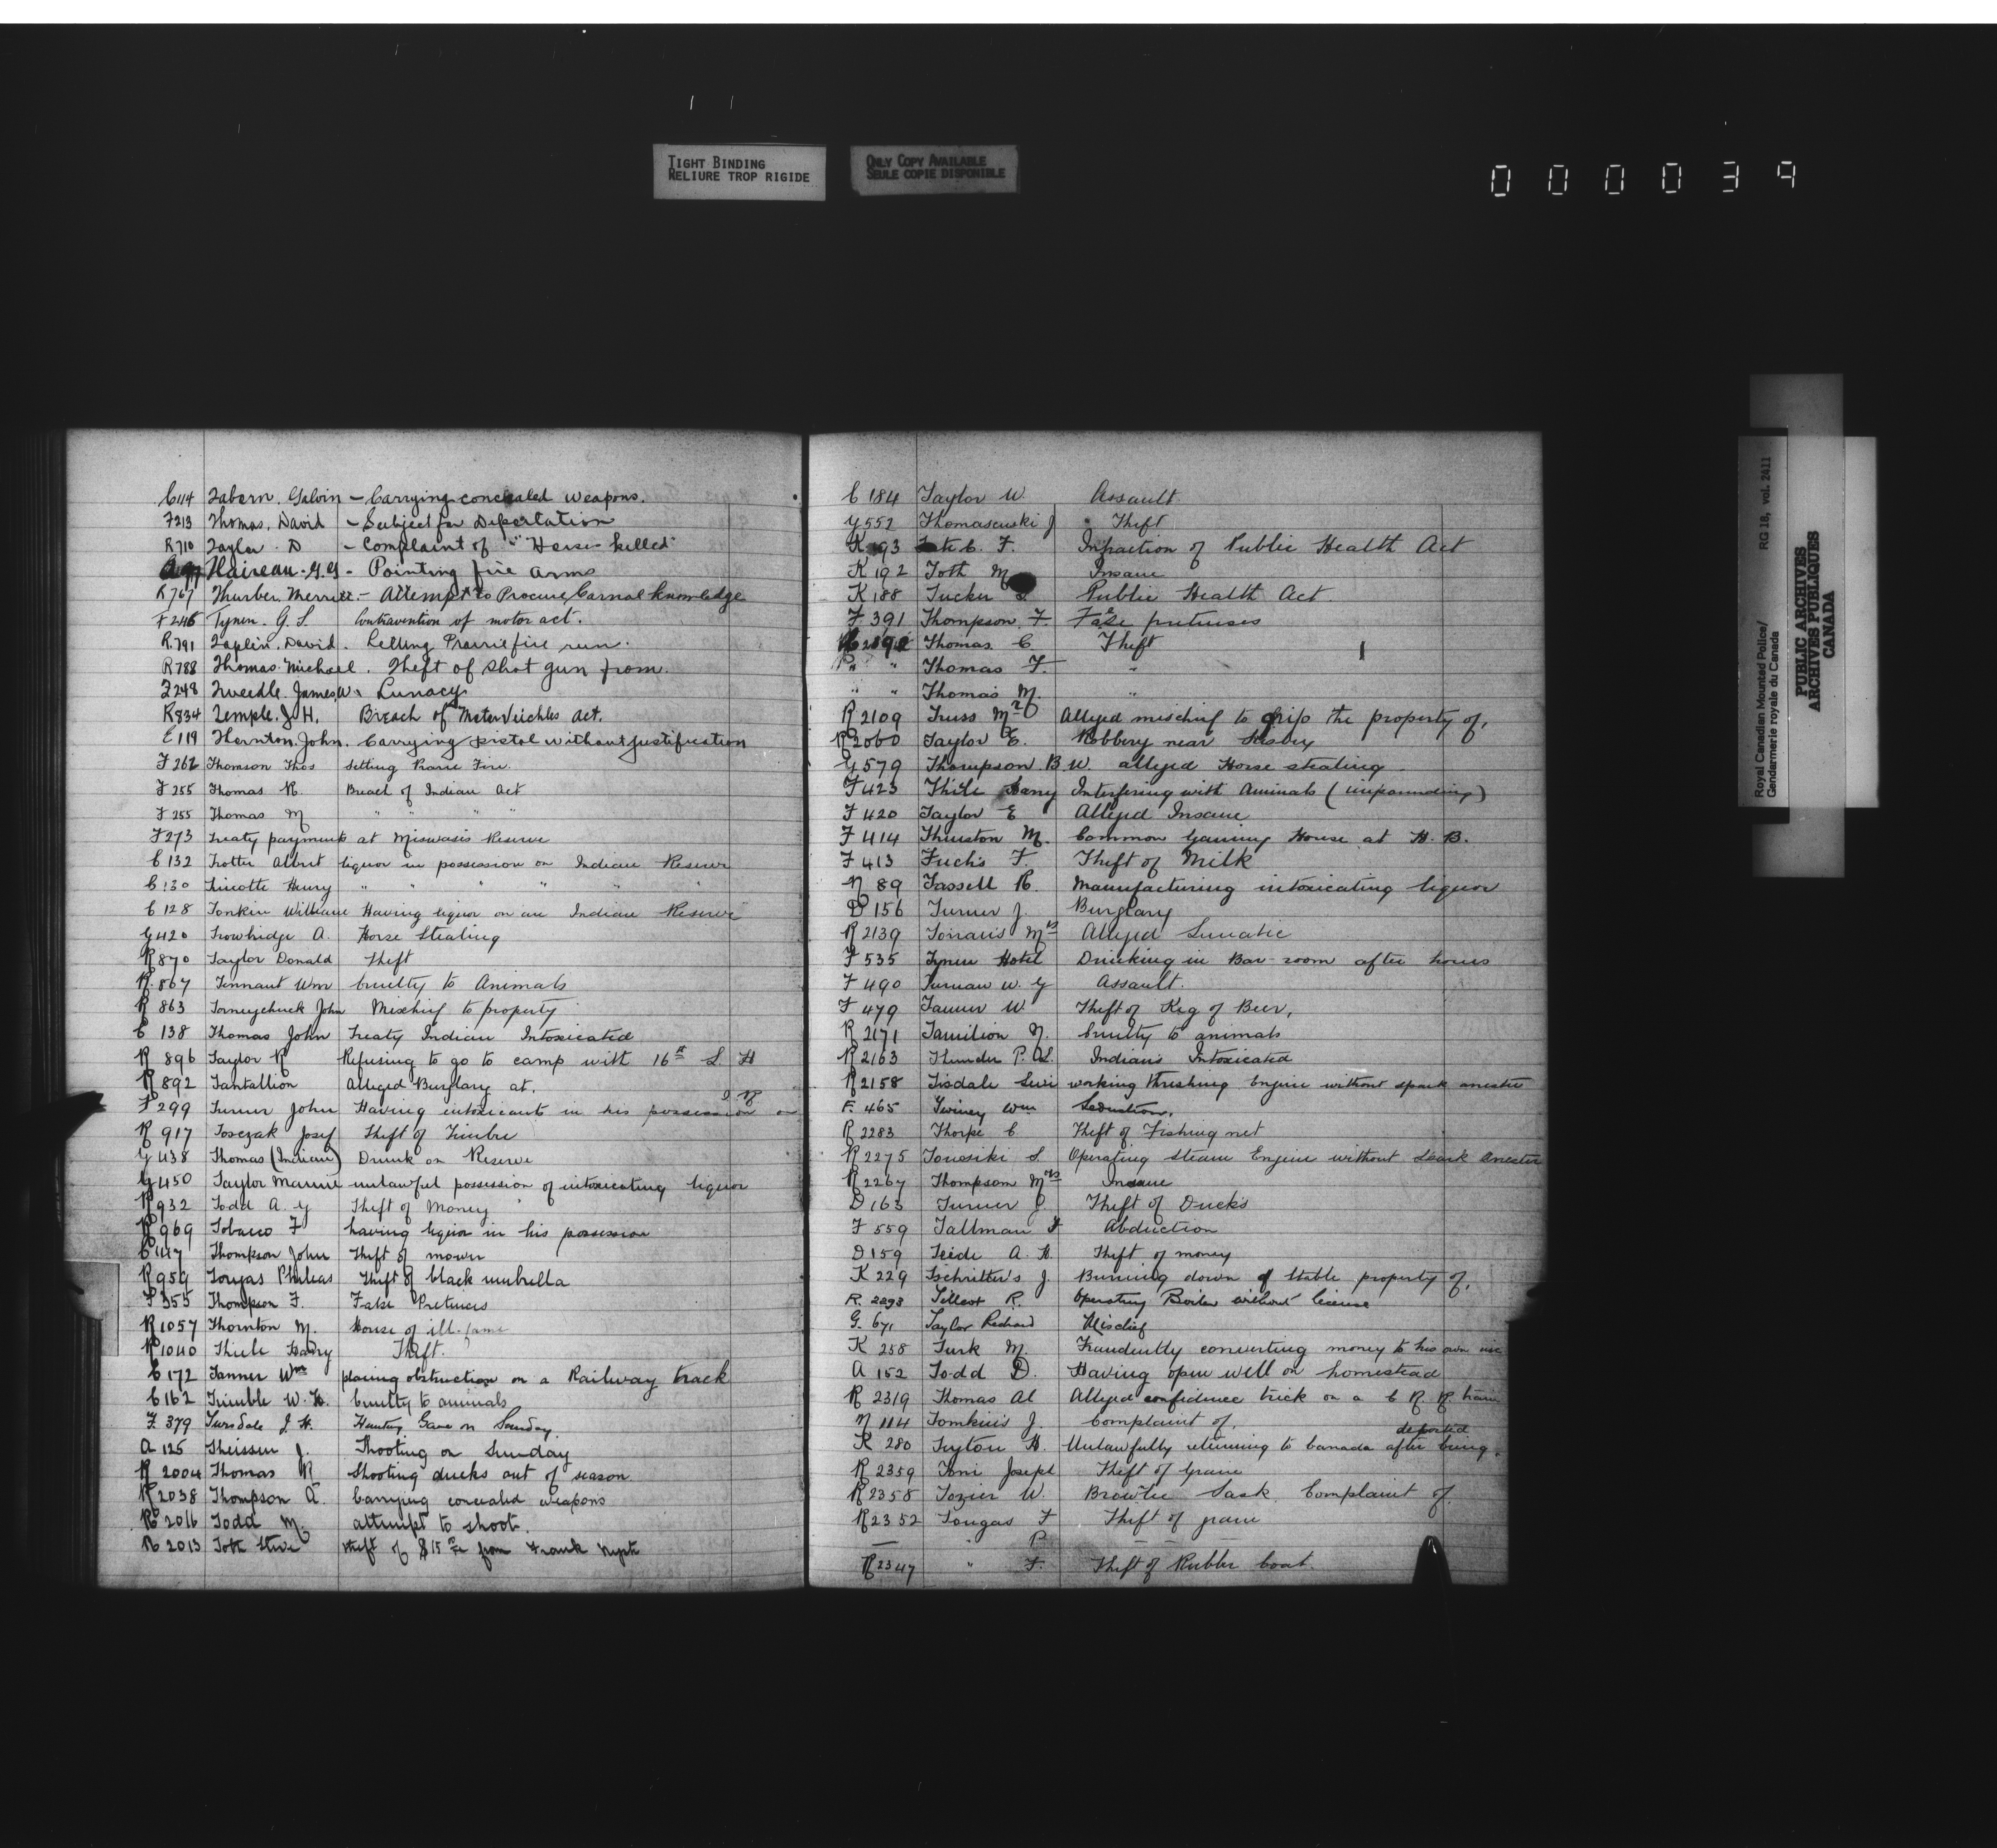 TIGHT BINDING
RELIURE TROP RIGIDE
ONLY COPY AVAILABLE
SEULE COPIE DISPONIBLE
000039
Royal Canadian Mounted Police/ RG 18, vol. 2411
Gendarmerie royale du Canada
PUBLIC ARCHIVES
ARCHIVES PUBLIQUES
CANADA
C114 Tabern. Galvin - Carrying concealed weapons.
F213 Thomas. David - Subject for Deportation
R710 Taylor. D - Complaint of " Horse killed"
- Pointing fire arms
R767 Thurber. Merritt. - Attempt to Procure Carnal knowledge
F246 Tynen. G. S. Contravention of motor act.
R.791 Taplin. David. Letting Prairie fire run.
R788 Thomas. Michael. Theft of shot gun from.
F248 Tweedle. James. W. Lunacy
R834 Temple. J. H. Breach of Motor Veichles act.
C119 Thornton. John. Carrying pistol without justification
F 262 Thomson Thos Setting Prarie Fire.
F 255 Thomas R. Breach of Indian Act
F 255 Thomas M " " "
F273 Treaty payments at Mistwasis Reserve
C 132 Trotter Albert liquor in possession on Indian Reserve
C 130 Henry " " " " " "
C 128 Tonkin William Having liquor on an Indian Reserve
G420 Trowbridge A. Horse Stealing
R870 Taylor Donald Theft
R.867 Tennant Wm Cruelty to Animals
R 863 Torneychuck John Mischief to property
C 138 Thomas John Treaty Indian Intoxicated
R 896 Taylor R Refusing to go to camp with 16th L. H
R 892 Tantallion Alleged Burglary at.
F 299 Turner John Having intoxicants in his possession on I R
R 917 Toszak Josef Theft of Timber
G 438 Thomas (Indian) Drunk on Reserve
G450 Taylor unlawful possession of intoxicating liquor
R932 Todd A. G Theft of Money
R969 Tobacco F having liquor in his possession
C 147 Thompson John Theft of mower
R959 Tougas Phileas Theft of black umbrella
F 355 Thompson F. False Pretences
R1057 Thornton M. House of ill-fame
R1040 Thiele Harry Theft.
C 172 Tanner Wm placing obstruction on a Railway track
C 162 Trimble W. H. Cruelty to animals
F. 379 J. H. Hunting Game on Sunday.
A 125 Theissen J. Shooting on Sunday
R 2004 Thomas R Shooting ducks out of season
R2038 Thompson A. Carrying concealed weapons
R 2016 Todd M. attempt to shoot.
R 2013 Toth Steve theft of $15 from Frank
C 184 Taylor W. Assault.
G552 Thomasewski J Theft
K 193 F. Infraction of Public Health Act
K 192 Toth M Insane
K 188 Tucker Public Health Act.
F 391 Thompson. F. False pretenses
Thomas. C Theft
" " Thomas F. "
" " Thomas M. "
R 2109 Truss Mr Alleged mischief to the property of,
R2060 Taylor E. Robbery near
G 579 Thompson. B W. alleged Horse stealing
F 423 Thile Harry Interfering with Animals (impounding)
F 420 Taylor E Alleged Insane
F 414 Thurston M. Common Gaming House at H. B.
F 413 Fuchs F. Theft of Milk
N 89 Tassell R. Manufacturing intoxicating liquor
D 156 Turner J. Burglary
R 2139 Mrs Alleged Lunatic
F 535 Tynen Hotel Drinking in Bar-room after hours
F 490 W. G Assault.
F 479 Tanner W Theft of Keg of Beer,
R 2171 N. Cruelty to animals
R 2163 Thunder P. Indians Intoxicated
R 2158 Tisdale Levi working threshing Engine without spark arrester
F. 465 Twiney Wm Seduction.
R 2283 Thorpe C Theft of Fishing net
R 2275 S. Operating Steam Engine without Spark Arrester
R 2267 Thompson Mrs Insane
D 163 Turner J. Theft of Ducks
F 559 Tallman F Abduction
D 159 Teide A. H. Theft of money
K 229 Tschritter's J. Burning down of Stable property of,
R. 2293 R. Operating Boiler without license
G. 671 Taylor Richard Mischief
K 258 Turk M. Fraudently converting money to his own use
A 152 Todd D. Having open well on homestead
R 2319 Thomas Al Alleged confidence trick on a C P. R. train
N 114 Tomkins J. Complaint of.
K 280 H. Unlawfully returning to Canada after being deported
R 2359 Toni Joseph Theft of Grain
R2358 Tozier W. Brownlee Sask Complaint of
R2352 Tougas F Theft of grain
" P
R2347 " F. Theft of Rubber boat.